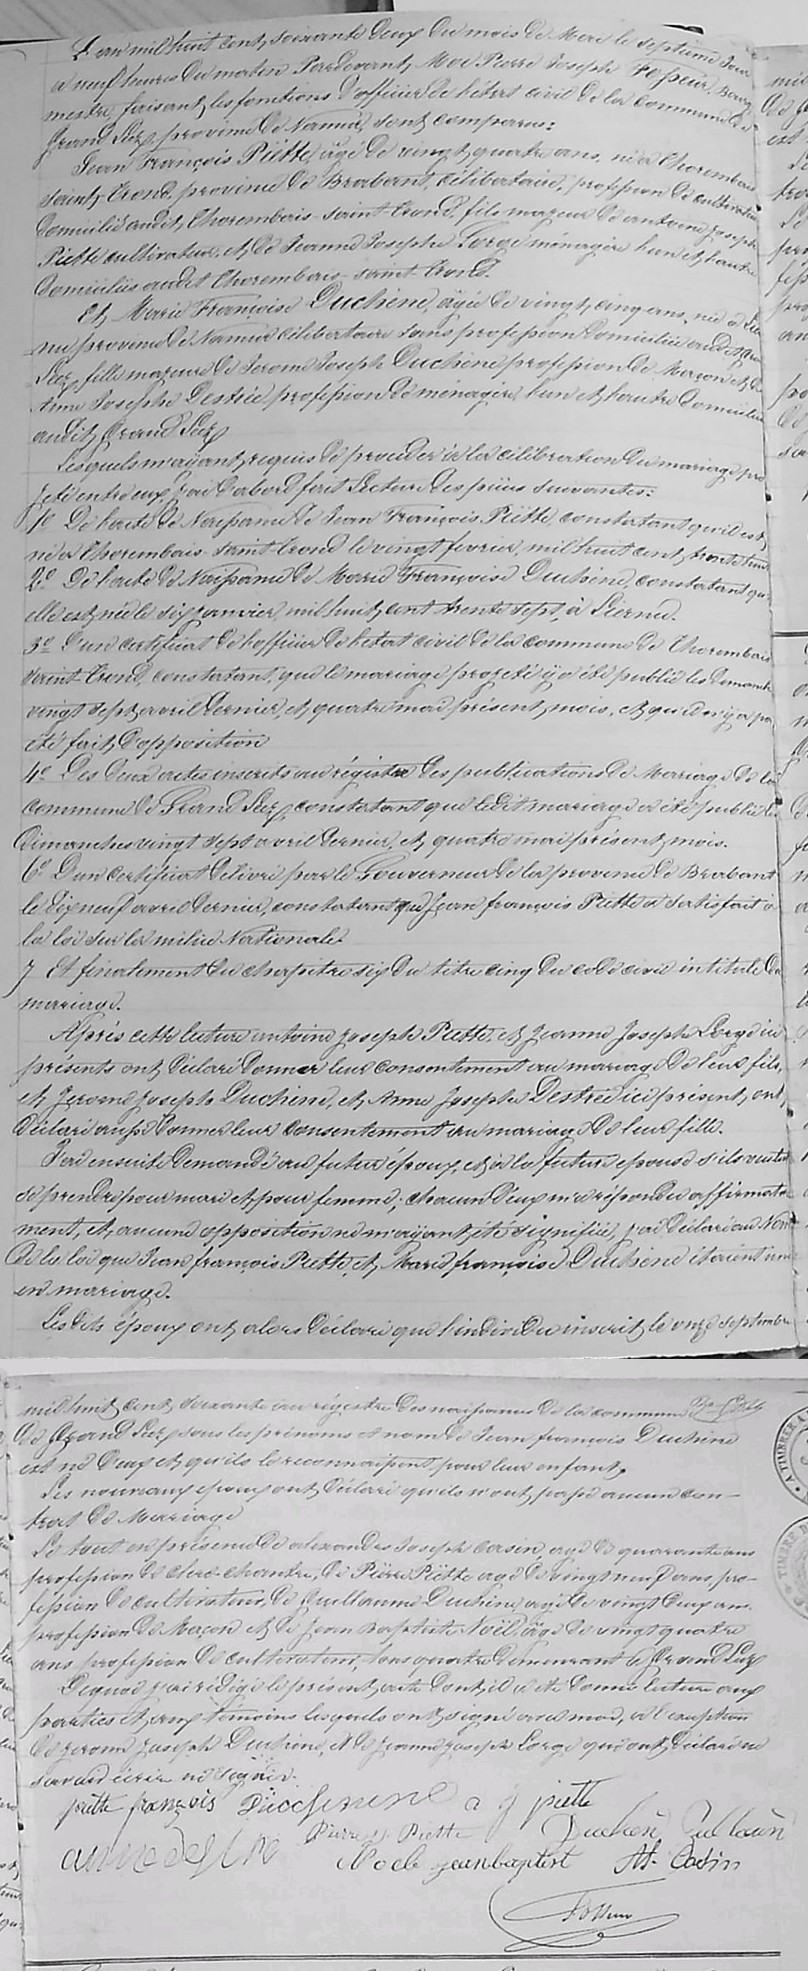 L'an mil huit cent soixante deux du mois de Mai le septième jour
a neuf heures du matin Pardevant Moi Pierre Joseph Bourg
mestre, faisant les fonctions d'officier de l'état civil de la commune de
Grand Leez, province de Namur, sont comparus:
Jean François Piette, âgé de vingt quatre ans, né à Thorembais
saint Trond, province de Brabant, célibataire, profession de cultivateur
domicilié audit Thorembais-saint-Trond, fils majeur de antoine joseph
Piette cultivateur, et de Jeanne Josephe Lorge ménagère l'un et l'autre
domiciliés audit Thorembais-saint-Trond.
Et Marie Françoise Duchêne, âgée de vingt cinq ans, née à Lier
nu province de Namur célibataire sans profession domiciliée audit Grand
Leez, fille majeure de Jerome Joseph Duchêne profession de Maçon et de
Anne Josephe Destrée profession de ménagère l'un et l'autre domiciliés
audit Grand Leez
Lesquels m'ayant requis de procéder à la célébration du mariage pro
jeté entre eux, j'ai d'abord fait Lecture des pièces suivantes:
1º De l'acte de Naissance de Jean François Piette, constatant qu'il est
né à Thorembais-saint-Trond le vingt fevrier, mil huit cent trente huit
2º De l'acte de Naissance de Marie Françoise Duchêne, constatant qu'
elle est née le dix janvier, mil huit cent trente sept, à Liernu.
3º D'un certificat de l'officier de l'état civil de la commune de Thorembais
saint-Trond, constatant, que le mariage projeté y a été publié les Dimanches
vingt sept avril dernier, et quatre mai présent mois, et qu'il n'y a pas
été fait d'opposition
4º Des deux actes inscrits au régistre des publications de Mariage de la
commune de Grand Leez, constatant que ledit mariage a été publié les
Dimanches vingt sept avril dernier, et quatre mai présent mois.
6º D'un certificat délivré par le Gouverneur de la province de Brabant
le dix neuf avril dernier, constatant que Jean françois Piette a satisfait à
la loi sur la milice Nationale.
7 Et finalement du chapitre six du titre cinq du code civil intitulé du
mariage.
Après cette lecture antoine Joseph Piette et Jeanne Joseph Lorge ici
présents ont déclaré donner leur consentement au mariage de leur fils,
et Jerome Joseph Duchêne, et Anne Josephe Destrée ici présent, ont
déclaré aussi donner leur consentement au mariage de leur fille.
J'ai ensuite demandé au futur époux, et à la future épouse s'ils veulent
se prendre pour mari et pour femme; chacun d'eux m'a répondu affirmative
ment, et, aucune opposition ne m'ayant été signifiée, j'ai déclaré au Nom
de la loi que Jean françois Piette, et Marie françoise Duchêne étaient unis
en mariage.
Lesdits époux ont alors déclaré que l'individu inscrit le onze septembre
mil huit cent soixante au régistre des naissances de la commune
de Grand Leez, sous les prénoms et nom de Jean françois Duchêne
est né d'eux et qu'ils le reconnaissent pour leur enfant.
Les nouveaux époux ont déclaré qu'ils n'ont passé aucun con-
trat de Mariage
Le tout en présence de alexandre Joseph Cassin, agé de quarante ans
profession de clerc-chantre, de Pierre Piette agé de vingt neuf ans, pro-
fession de cultivateur, de Guillaume Duchêne, agé de vingt deux ans
profession de Maçon et de Jean Baptiste Noël, agé de vingt quatre
ans profession de cultivateur, tous quatre demeurant à Grand Leez
De quoi j'ai rédigé le présent acte dont il a été donné lecture aux
parties et aux témoins lesquels ont signé avec moi, à l'exception
de Jerome Joseph Duchêne, et de Jeanne Joseph Lorge qui ont déclaré ne
savoir écrire ni signer.
piette françois Ducchenene a j piette
Pierre J. Piette Duchên Guillaum
anne destré Noel jeanbaptist At. Casin